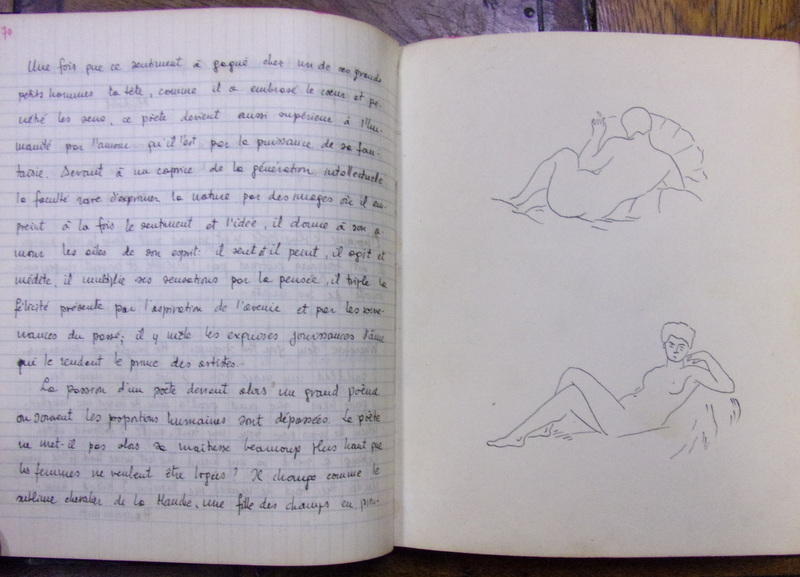 70
Une fois que ce sentiment a gagné chez un de ces grands
petits hommes la tête, comme il a embrasé le cœur et pé-
nétré les sens, ce poète devient aussi supérieur à l'hu-
manité par l'amour qu'il l'est par la puissance de sa fan-
taisie. Devant à un caprice de la génération intellectuelle
la faculté rare d'exprimer la nature par des images où il em-
preint à la fois le sentiment et l'idée, il donne à son a-
mour les ailes de son esprit: il sent et il peint, il agit et
médite, il multiplie ses sensations par la pensée, il triple la
félicité présente par l'aspiration de l'avenir et par les souve-
nances du passé; il y mêle les exquises jouissances d'âme
qui le rendent le prince des artistes.
La passion d'un poète devient alors un grand poème
où souvent les proportions humaines sont dépassées. Le poète
ne met-il pas alors sa maîtresse beaucoup plus haut que
les femmes ne veulent être logées? Il change comme le
sublime chevalier de la Manche, une fille des champs en prin-